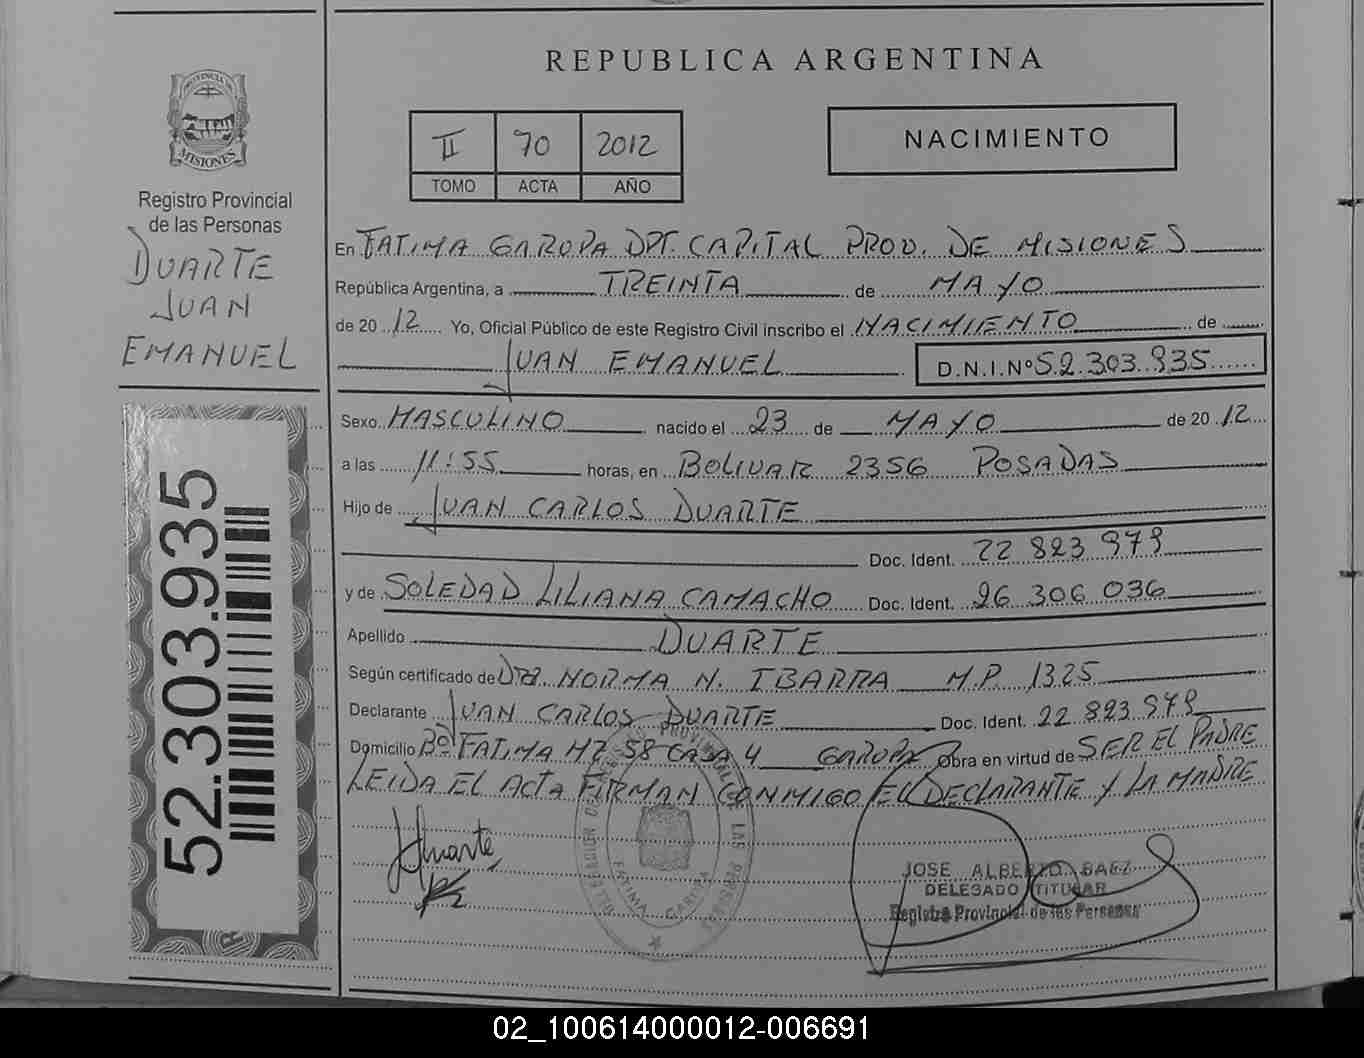 REPUBLICA ARGENTINA
PROVINCIA DE
MISIONES
Registro Provincial
de las Personas
DUARTE
JUAN
EMANUEL
52.303.935
II 70 2012
TOMO ACTA AÑO
NACIMIENTO
En FATIMA GAROPA DPT. CAPITAL PROV. DE MISIONES
República Argentina, a TREINTA de MAYO
de 20 12 Yo, Oficial Público de este Registro Civil inscribo el NACIMIENTO de
JUAN EMANUEL D.N.I.Nº 52.303.935
Sexo MASCULINO nacido el 23 de MAYO de 20 12
a las 11:55 horas, en BOLIVAR 2356 POSADAS
Hijo de JUAN CARLOS DUARTE
Doc. Ident. 22 823 979
y de SOLEDAD LILIANA CAMACHO Doc. Ident. 26 306 036
Apellido DUARTE
Según certificado de DRA. NORMA N. IBARRA M.P 1325
Declarante JUAN CARLOS DUARTE Doc. Ident. 22 823 979
Domicilio Bº FATIMA MZ 58 CASA 4 GAROPA Obra en virtud de SER EL PADRE
LEIDA EL ACTA FIRMAN CONMIGO EL DECLARANTE Y LA MADRE
JDuarte
JOSE ALBERTO BAEZ
DELEGADO TITULAR
Registro Provincial de las Personas
02_100614000012-006691